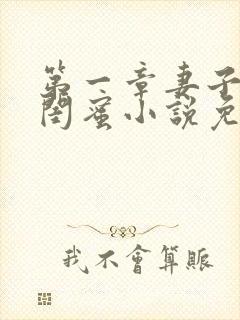 第一章妻子
闺蜜小說免
我不會算賬